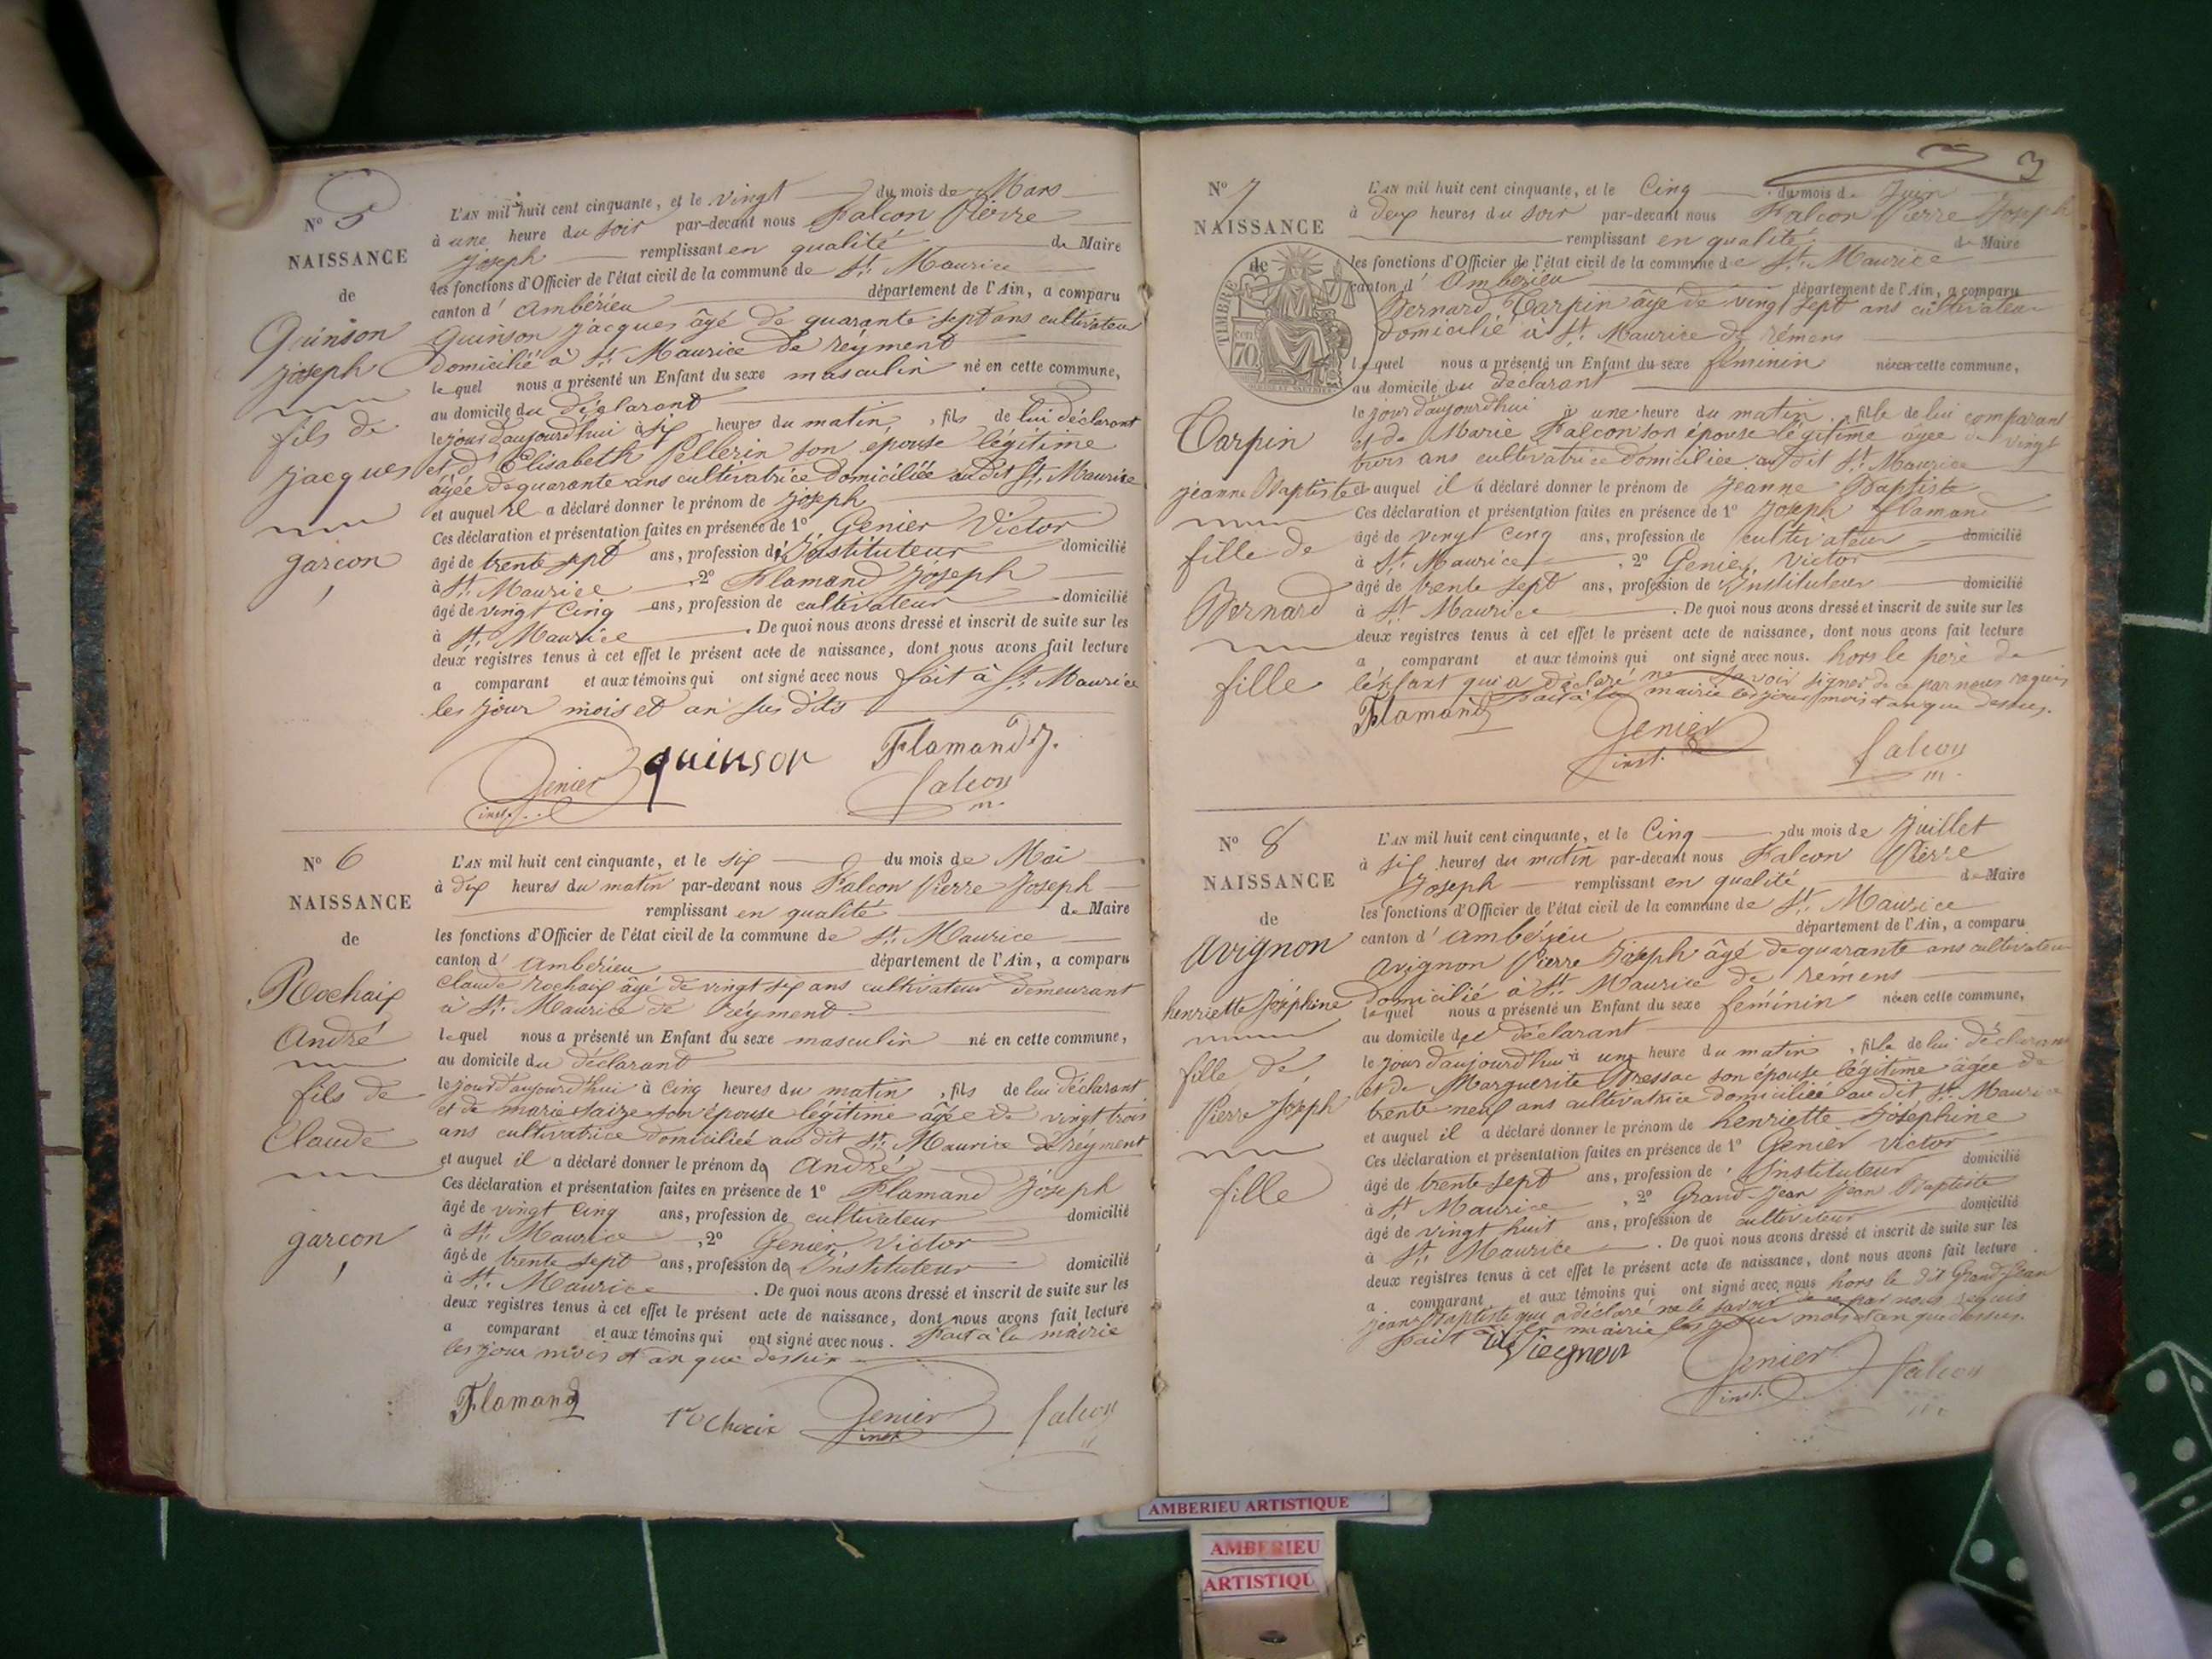 N° 5
NAISSANCE
de
Quinson
joseph
fils de
jacques
garcon
L'AN mil huit cent cinquante, et le vingt du mois de Mars
à une heure du soir par-devant nous Falcon Pierre
Joseph remplissant en qualité de Maire
les fonctions d'Officier de l'état civil de la commune de St. Maurice
canton d'Ambérieu département de l'Ain, a comparu
Quinson Jacques âgé de quarante sept ans cultivateur
domicilié à St. Maurice de reyment
lequel nous a présenté un Enfant du sexe masculin né en cette commune,
au domicile du déclarant
le jour d'aujourd'hui à six heures du matin, fils de lui déclarant
et d'Elisabeth Pellerin son epouse légitime
âgée de quarante ans cultivatrice domiciliée au dit St. Maurice
et auquel il a déclaré donner le prénom de joseph
Ces déclaration et présentation faites en présence de 1° Genier Victor
âgé de trente sept ans, profession d'Instituteur domicilié
à St. Maurice , 2° Flamand Joseph
âgé de vingt Cinq ans, profession de cultivateur domicilié
à St. Maurice . De quoi nous avons dressé et inscrit de suite sur les
deux registres tenus à cet effet le présent acte de naissance, dont nous avons fait lecture
a comparant et aux témoins qui ont signé avec nous fait à St. Maurice
les jour mois et an sus dits
Genier inst. quinson Flamand J.
falcon m.
N° 6
NAISSANCE
de
Rochaix
André
fils de
Claude
garcon
L'AN mil huit cent cinquante, et le six du mois de Mai
à dix heures du matin par-devant nous Falcon Pierre Joseph
remplissant en qualité de Maire
les fonctions d'Officier de l'état civil de la commune de St. Maurice
canton d'Ambérieu département de l'Ain, a comparu
Claude rochaix âgé de vingt six ans cultivateur demeurant
à St. Maurice de réyment
lequel nous a présenté un Enfant du sexe masculin né en cette commune,
au domicile du déclarant
le jour d'aujourd'hui à cinq heures du matin, fils de lui déclarant
et de marie saize son épouse légitime âgée de vingt trois
ans cultivatrice domiciliée au dit St. Maurice de réyment
et auquel il a déclaré donner le prénom de André
Ces déclaration et présentation faites en présence de 1° Flamand Joseph
âgé de vingt cinq ans, profession de cultivateur domicilié
à St. Maurice , 2° Genier Victor
âgé de trente sept ans, profession de Instituteur domicilié
à St. Maurice . De quoi nous avons dressé et inscrit de suite sur les
deux registres tenus à cet effet le présent acte de naissance, dont nous avons fait lecture
a comparant et aux témoins qui ont signé avec nous. Fait à la mairie
les jour mois et an que dessus
Flamand rochaix Genier inst. falcon
3
N° 7
NAISSANCE
de
TIMBRE
70
Carpin
jeanne Baptiste
fille de
Bernard
fille
L'AN mil huit cent cinquante, et le Cinq du mois de Juin
à deux heures du soir par-devant nous Falcon Pierre Joseph
remplissant en qualité de Maire
les fonctions d'Officier de l'état civil de la commune de St. Maurice
canton d'Ambérieu département de l'Ain, a comparu
Bernard Carpin âgé de vingt sept ans cultivateur
domicilié à St. Maurice de rémens
lequel nous a présenté un Enfant du sexe féminin né en cette commune,
au domicile du déclarant
le jour d'aujourd'hui à une heure du matin, fille de lui comparant
et de Marie Falcon son épouse légitime âgée de vingt
trois ans cultivatrice domiciliée au dit St. Maurice
et auquel il a déclaré donner le prénom de Jeanne Baptiste
Ces déclaration et présentation faites en présence de 1° Joseph flamand
âgé de vingt cinq ans, profession de cultivateur domicilié
à St. Maurice , 2° Genier, Victor
âgé de trente sept ans, profession de Instituteur domicilié
à St. Maurice . De quoi nous avons dressé et inscrit de suite sur les
deux registres tenus à cet effet le présent acte de naissance, dont nous avons fait lecture
a comparant et aux témoins qui ont signé avec nous. hors le père de
l'enfant qui a déclaré ne savoir signer de ce par nous requis
Fait à la mairie les jour mois et an que dessus.
Flamand Genier inst. falcon m.
N° 8
NAISSANCE
de
avignon
henriette Joséphine
fille de
Pierre Joseph
fille
L'AN mil huit cent cinquante, et le Cinq du mois de Juillet
à six heures du matin par-devant nous Falcon Pierre
Joseph remplissant en qualité de Maire
les fonctions d'Officier de l'état civil de la commune de St. Maurice
canton d'ambérieu département de l'Ain, a comparu
avignon Pierre Joseph âgé de quarante ans cultivateur
domicilié à St. Maurice de remens
lequel nous a présenté un Enfant du sexe feminin né en cette commune,
au domicile du déclarant
le jour d'aujourd'hui à une heure du matin, fille de lui déclarant
et de Marguerite Bressac son épouse légitime âgée de
trente neuf ans cultivatrice domiciliée au dit St. Maurice
et auquel il a déclaré donner le prénom de henriette Joséphine
Ces déclaration et présentation faites en présence de 1° Genier Victor
âgé de trente sept ans, profession de Instituteur domicilié
à St. Maurice , 2° Grand-Jean Jean Baptiste
âgé de vingt huit ans, profession de cultivateur domicilié
à St. Maurice . De quoi nous avons dressé et inscrit de suite sur les
deux registres tenus à cet effet le présent acte de naissance, dont nous avons fait lecture
a comparant et aux témoins qui ont signé avec nous hors le dit Grand Jean
jean Baptiste qui a déclaré ne le savoir de ce par nous requis
fait à la mairie les jour mois et an que dessus.
Genier inst. falcon
AMBERIEU ARTISTIQUE
AMBERIEU
ARTISTIQU